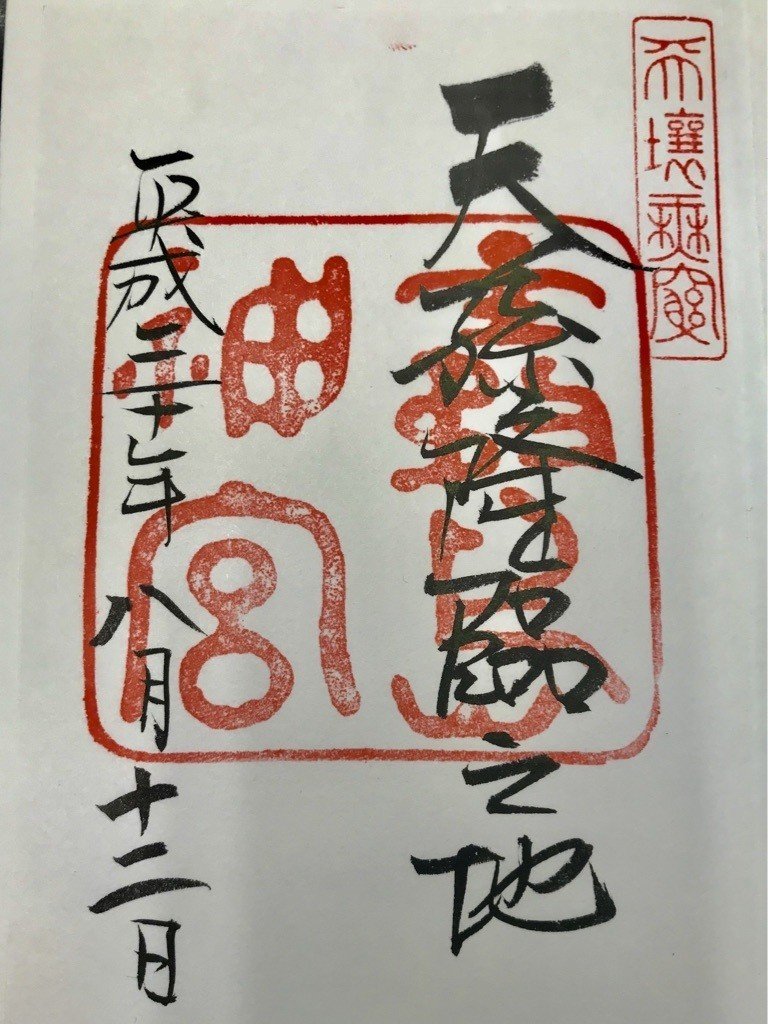 天壌無窮
天孫降臨之地
霧島
神宮
平成三十年八月十二日